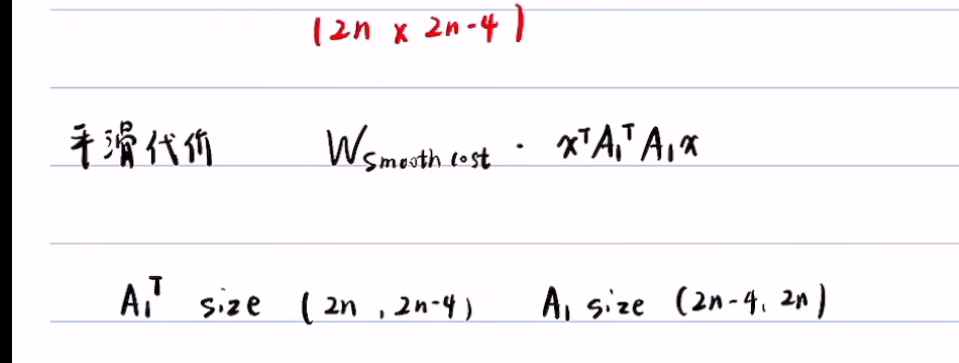 (2n x 2n-4)
平滑代价 W smooth cost · xᵀA₁ᵀA₁x
A₁ᵀ size (2n , 2n-4) A₁ size (2n-4, 2n)